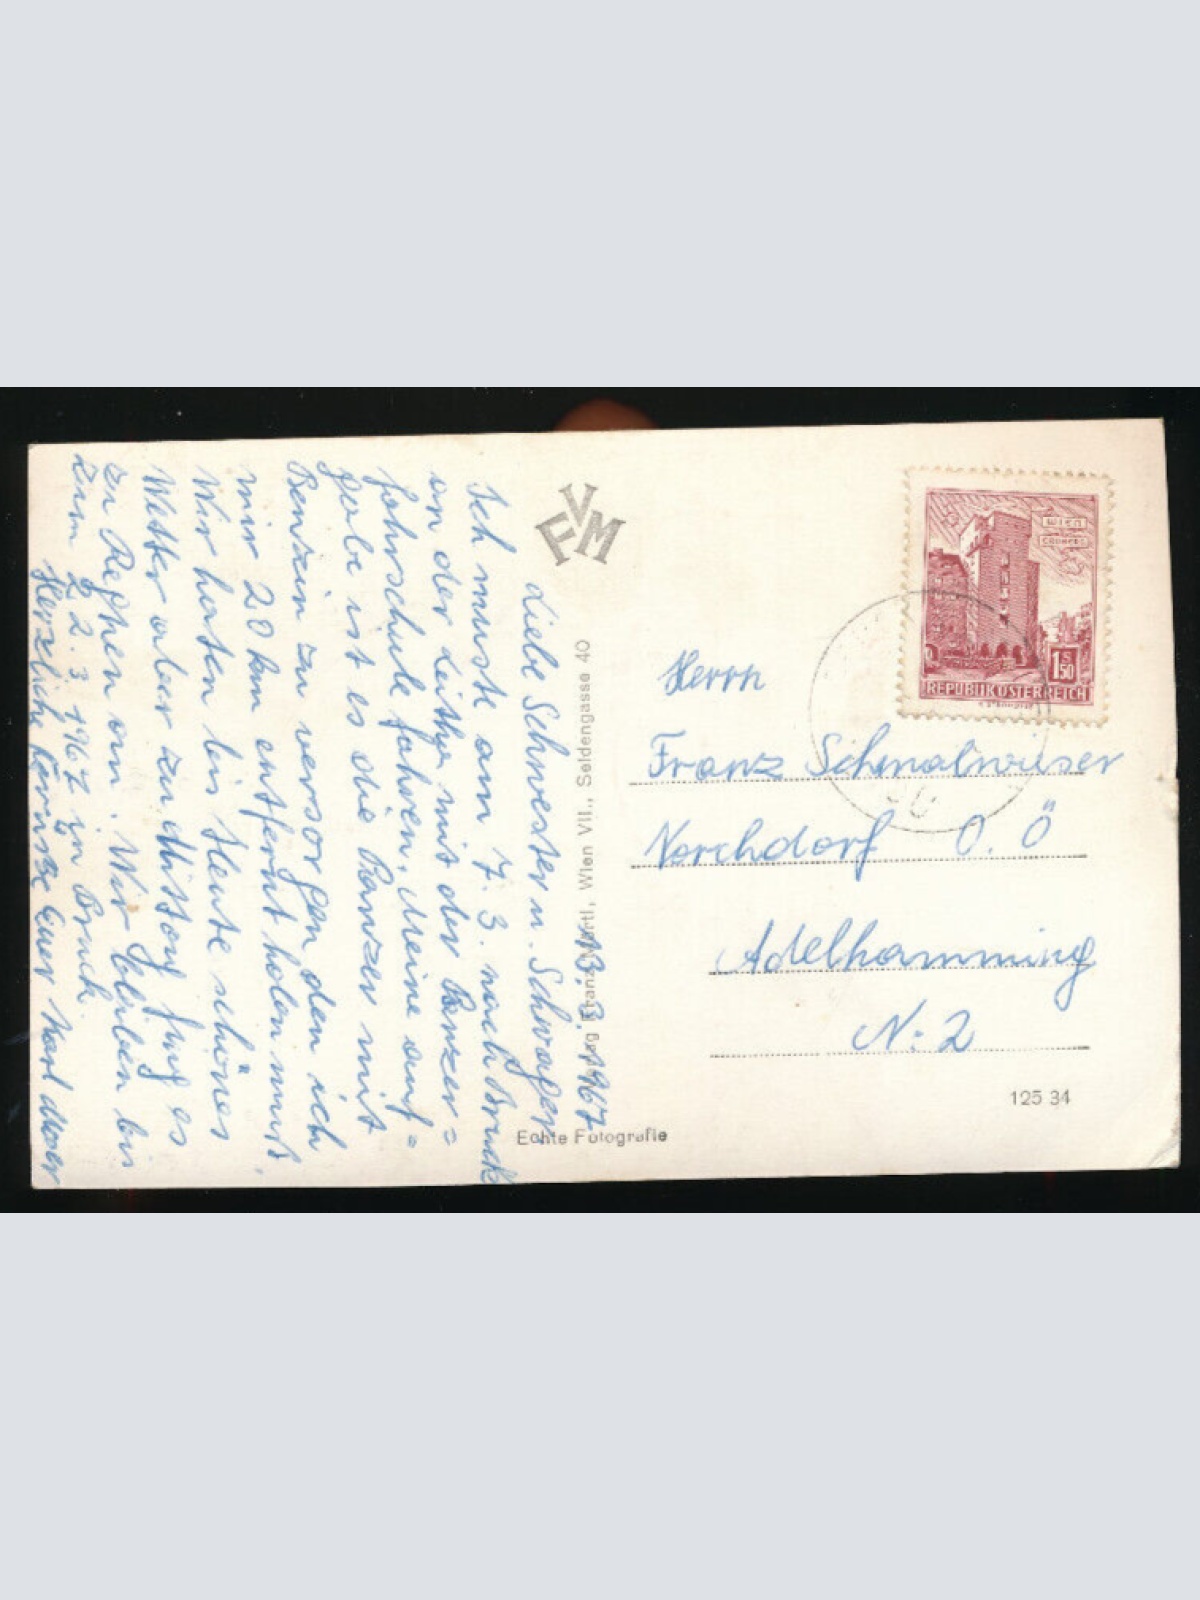 13. 3. 1967
Liebe Schwester u. Schwager
Ich muste am 7. 3. nach Bruck
an der Leitha mit der Panzer=
fahrschule fahren. Meine auf=
gabe ist es die Panzer mit
Benzin zu versorgen den ich
mir 20 km entfernt holen muß,
Wir hatten bis Heute schönes
Wetter aber zu Mittag fing es
zu Regnen an. Wir bleiben bis
zum 22. 3. 1967 in Bruck.
Herzliche Grüße Euer Karl
VFM
Verlag Franz Mörtl, Wien VII., Seidengasse 40
Echte Fotografie
WIEN
ERDBERG
1 S 50
REPUBLIK ÖSTERREICH
Herrn
Franz Schmalwieser
Vorchdorf O. Ö
Adelhamming
N: 2
125 34